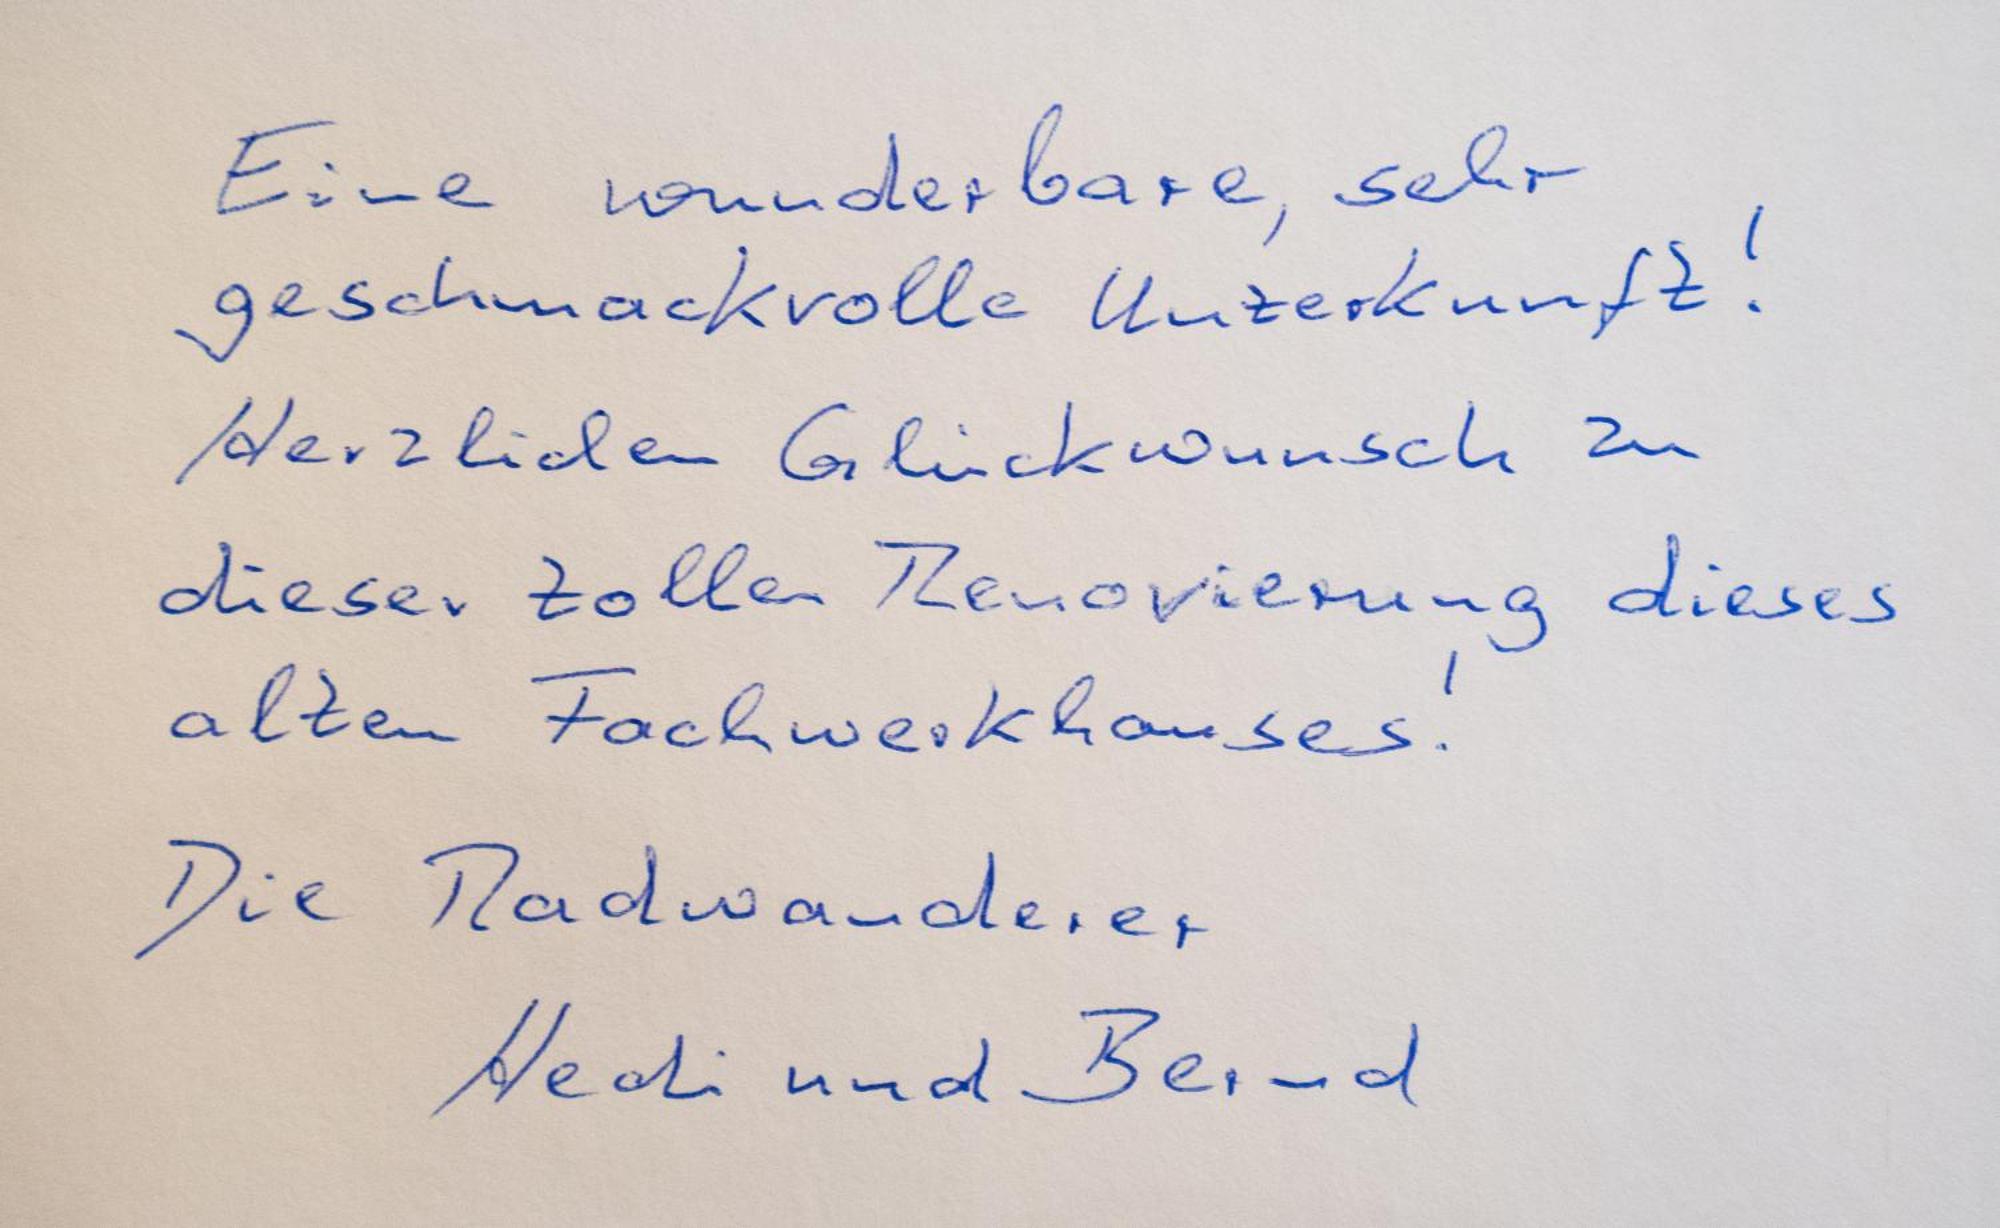 Eine wunderbare, sehr
geschmackvolle Unterkunft!
Herzlichen Glückwunsch zu
dieser tollen Renovierung dieses
alten Fachwerkhauses!
Die Radwanderer
Hedi und Bernd